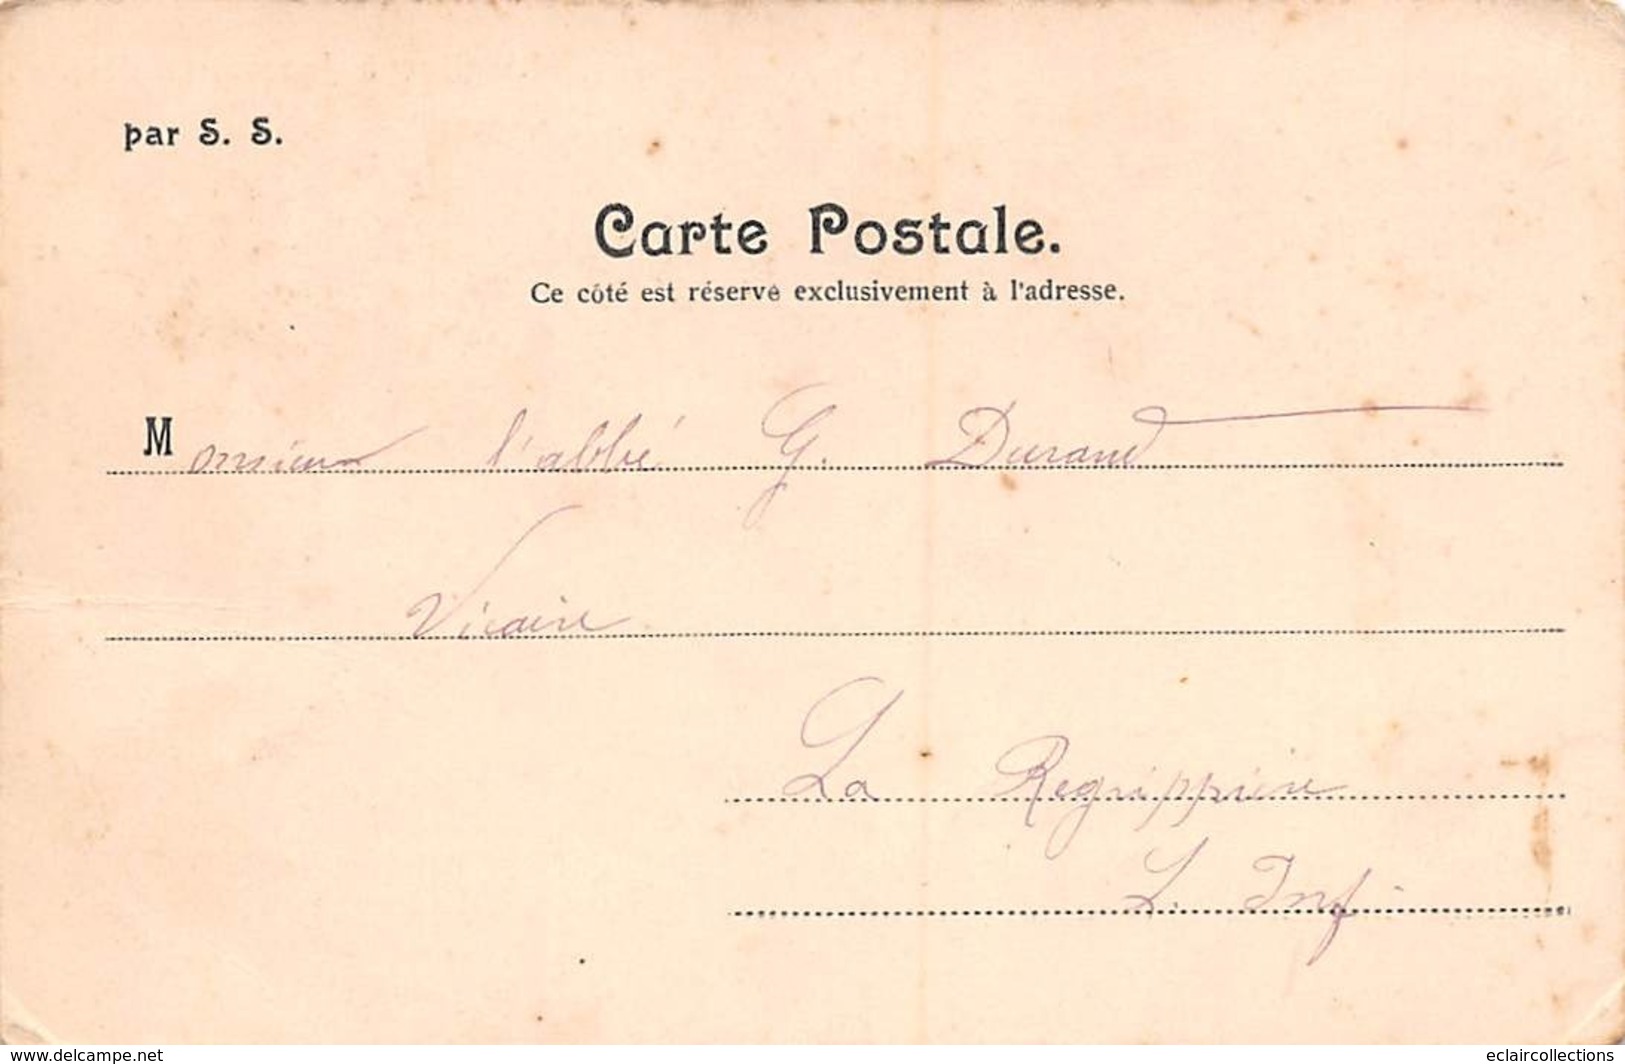 par S. S.
Carte Postale.
Ce côté est réservé exclusivement à l'adresse.
Monsieur l'abbé G. Durand
Vicaire
La Regrippière
L. Inf.
www.delcampe.net
eclaircollections